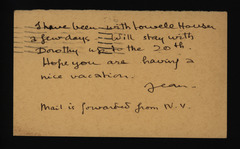 I have been with Lowell Houser
a few days. Will stay with
Dorothy up to the 20th.
Hope you are having a
nice vacation.
Jean.
Mail is forwarded from N.Y.